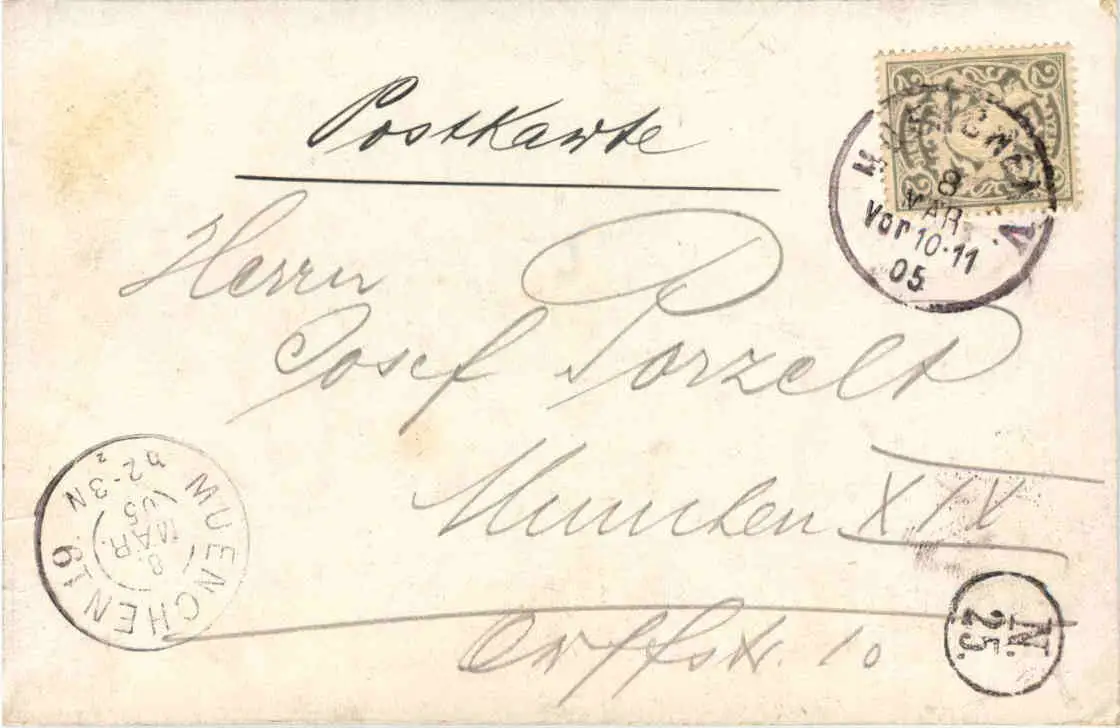 Postkarte
2 2
2 2
MUENCHEN V.
8
MAR
Vor 10-11
05
Herrn
Josef Porzelt
München XIX
Orffstr. 10
MUENCHEN 19
8.
MAR.
05
2-3 N
N.
25.